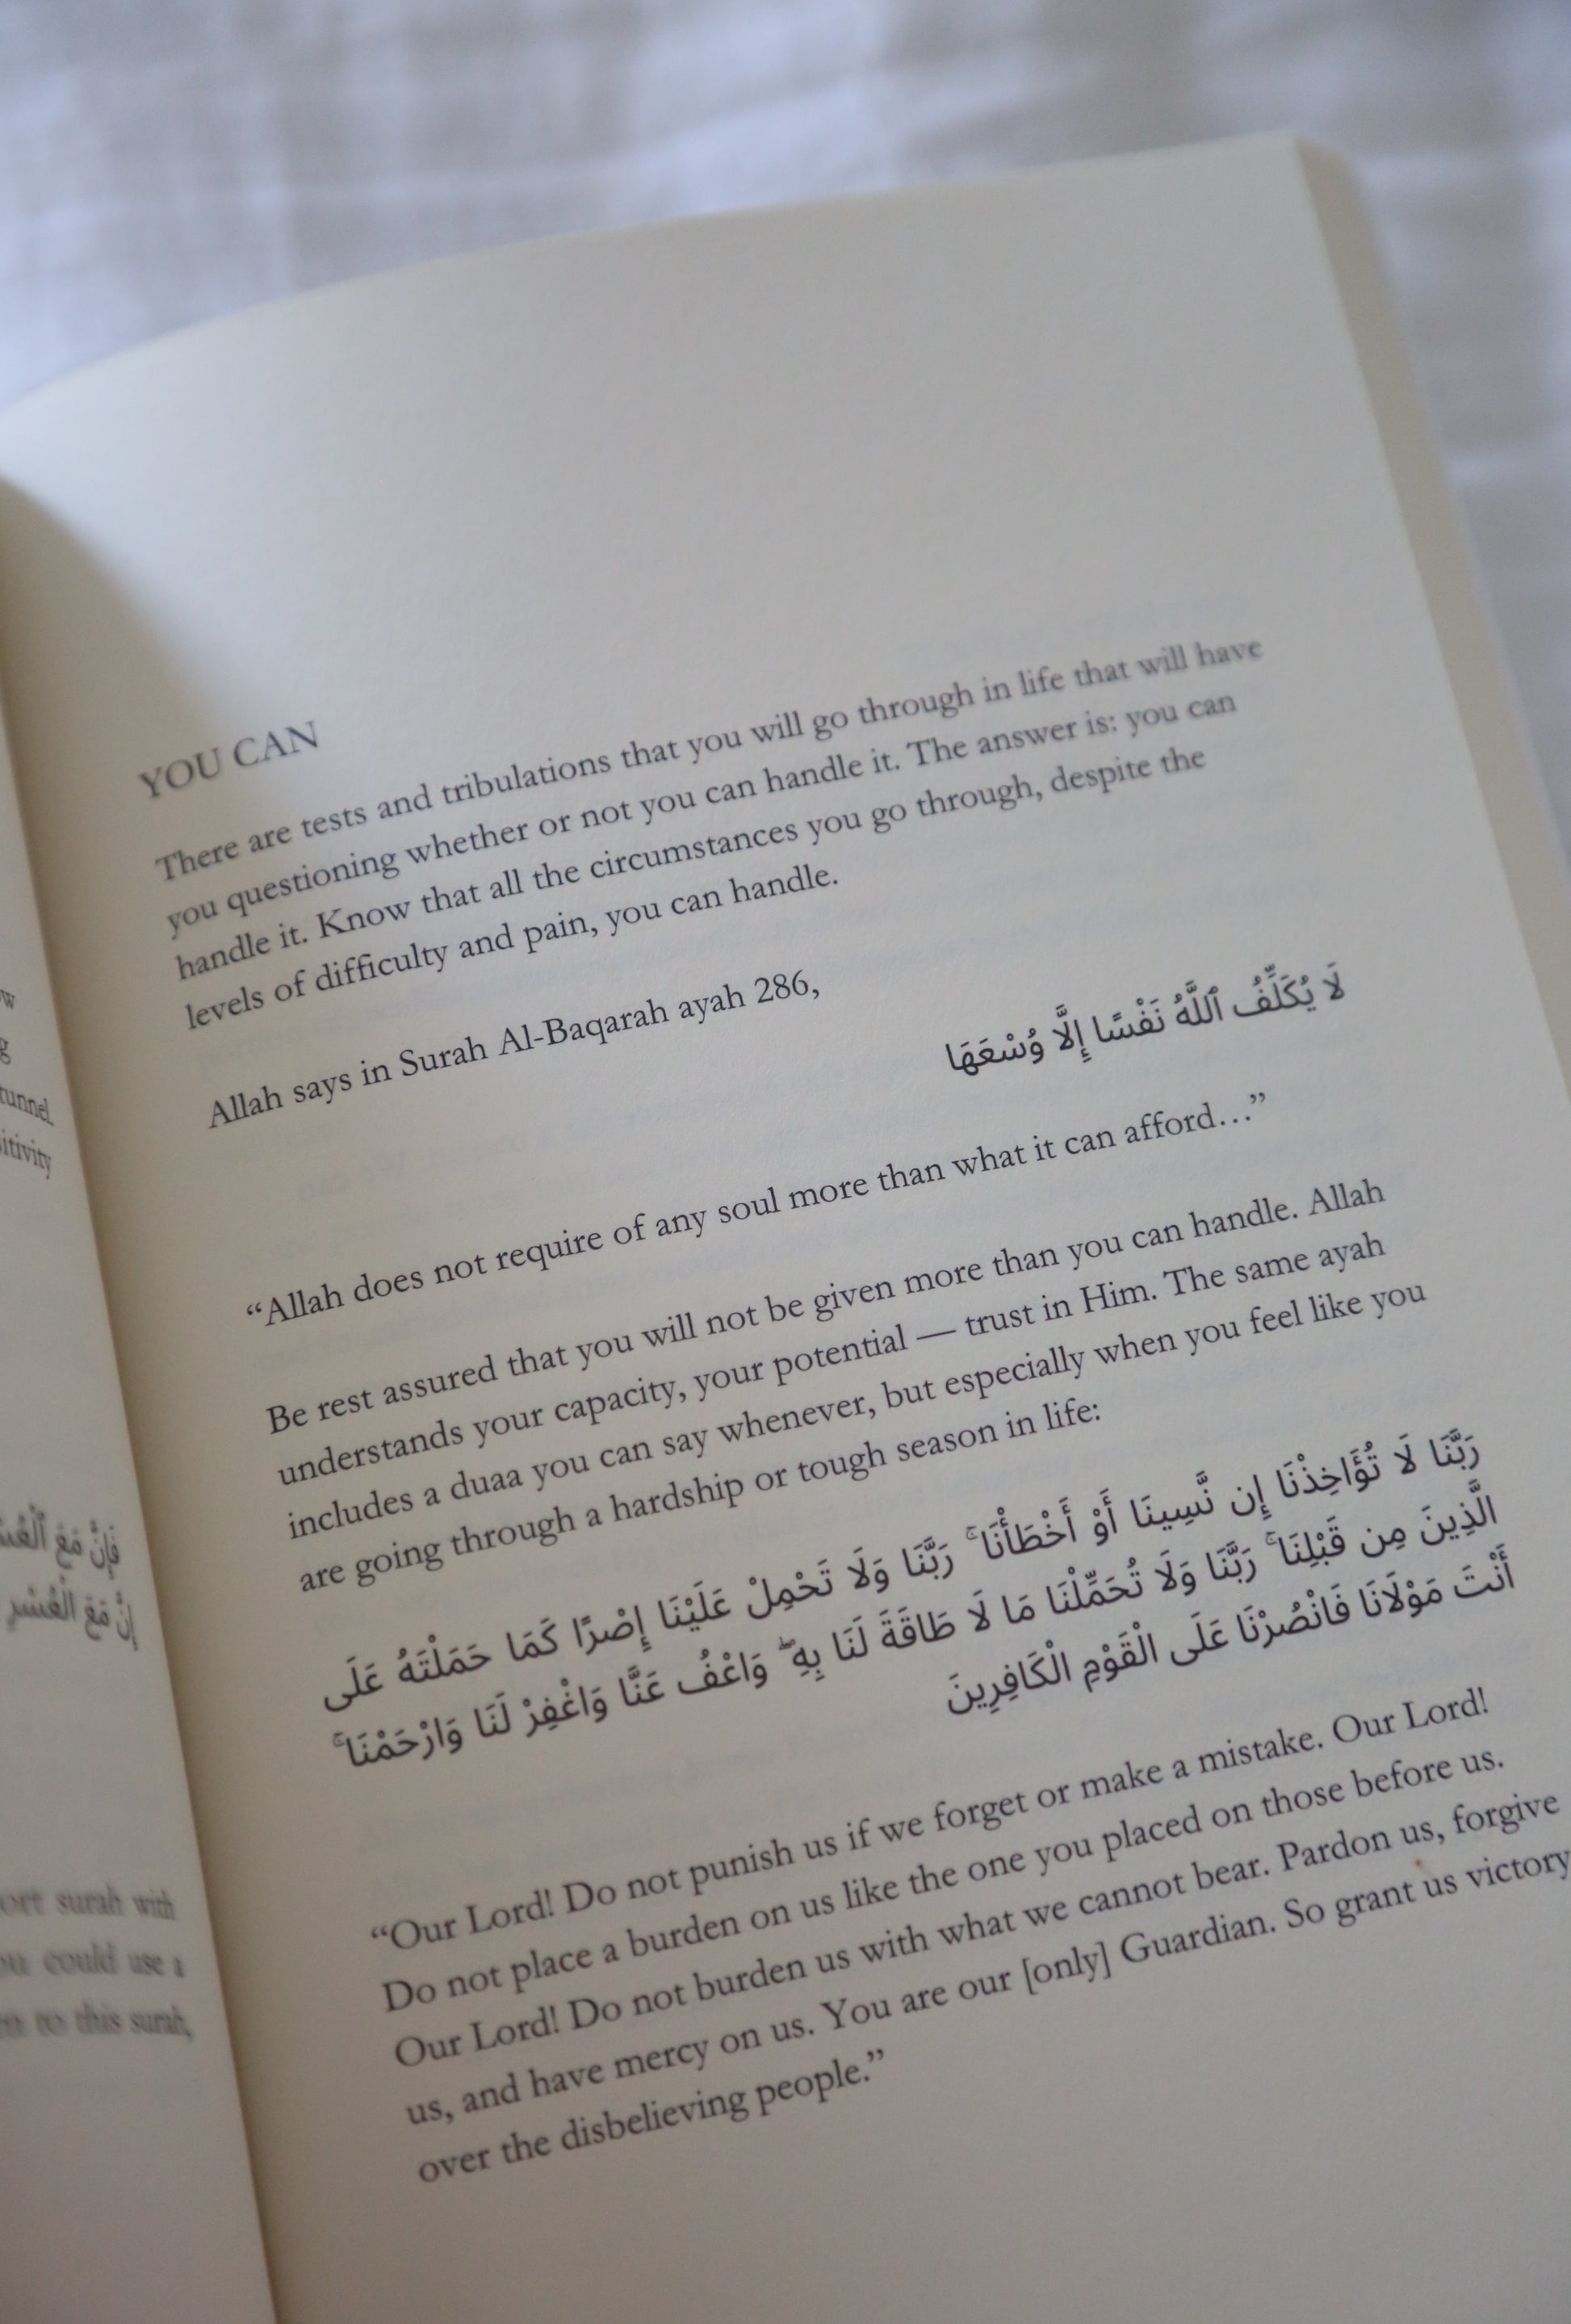 tunnel.
فَإِنَّ مَعَ
إِنَّ مَعَ الْعُسْرِ
surah with
could use a
to this surah,
YOU CAN
There are tests and tribulations that you will go through in life that will have
you questioning whether or not you can handle it. The answer is: you can
handle it. Know that all the circumstances you go through, despite the
levels of difficulty and pain, you can handle.
Allah says in Surah Al-Baqarah ayah 286,
لَا يُكَلِّفُ ٱللَّهُ نَفْسًا إِلَّا وُسْعَهَا
“Allah does not require of any soul more than what it can afford…”
Be rest assured that you will not be given more than you can handle. Allah
understands your capacity, your potential — trust in Him. The same ayah
includes a duaa you can say whenever, but especially when you feel like you
are going through a hardship or tough season in life:
رَبَّنَا لَا تُؤَاخِذْنَا إِن نَّسِينَا أَوْ أَخْطَأْنَا ۚ رَبَّنَا وَلَا تَحْمِلْ عَلَيْنَا إِصْرًا كَمَا حَمَلْتَهُ عَلَى
الَّذِينَ مِن قَبْلِنَا ۚ رَبَّنَا وَلَا تُحَمِّلْنَا مَا لَا طَاقَةَ لَنَا بِهِ ۖ وَاعْفُ عَنَّا وَاغْفِرْ لَنَا وَارْحَمْنَا ۚ
أَنْتَ مَوْلَانَا فَانْصُرْنَا عَلَى الْقَوْمِ الْكَافِرِينَ
“Our Lord! Do not punish us if we forget or make a mistake. Our Lord!
Do not place a burden on us like the one you placed on those before us.
Our Lord! Do not burden us with what we cannot bear. Pardon us, forgive
us, and have mercy on us. You are our [only] Guardian. So grant us victory
over the disbelieving people.”